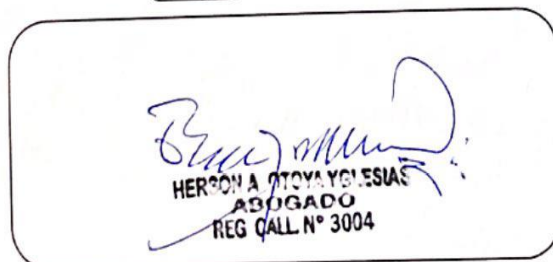 HERSON A. OTOYA YGLESIAS
ABOGADO
REG CALL. Nº 3004